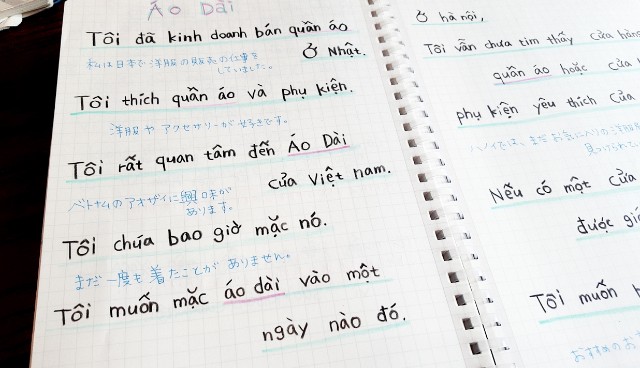 Áo Dài
Tôi đã kinh doanh bán quần áo
ở Nhật.
私は日本で洋服の販売の仕事を
していました。
Tôi thích quần áo và phụ kiện.
洋服やアクセサリーが好きです。
Tôi rất quan tâm đến Áo Dài
của Việt nam.
ベトナムのアオザイに興味が
あります。
Tôi chứa bao giờ mặc nó.
まだ一度も着たことがありません。
Tôi muốn mặc áo dài vào một
ngày nào đó.
Ở hà nội,
Tôi vẫn chưa tìm thấy cửa hàng
quần áo hoặc cửa
phụ kiện yêu thích của
ハノイでは、まだお気に入りの洋服
Nếu có một cửa
được
Tôi muốn
おすすめの